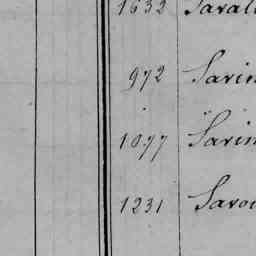 1632 Saral
972 Sarin
1077 Sarin
1231 Savo